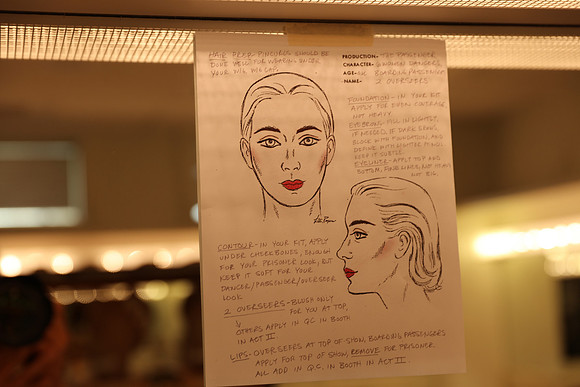 HAIR PREP- PINCURLS SHOULD BE
DONE
YOUR MIC
PRODUCTION- THE PASSENGER
CHARACTER- WOMAN DANCERS,
AGE- BOARDING/PASSENGERS
NAME- 2 OVERSEERS
FOUNDATION- IN YOUR KIT
APPLY FOR EVEN COVERAGE
NOT HEAVY.
EYEBROWS- FILL IN LIGHTER
IF NEEDED, IF DARK BROWS,
BLOCK WITH FOUNDATION, AND
DEFINE WITH LIGHTER PENCIL
KEEP IT SUBTLE.
EYELINER- APPLY TOP AND
BOTTOM, FINE LINER, NOT HEAVY
NOT BIG.
CONTOUR- IN YOUR KIT, APPLY
UNDER CHEEKBONES, ENOUGH
FOR YOUR PRISONER LOOK, BUT
KEEP IT SOFT FOR YOUR
DANCER/PASSENGER/OVERSEER
LOOK
2 OVERSEERS- BLUSH ONLY
FOR YOU AT TOP,
OTHERS APPLY IN Q.C. IN BOOTH
IN ACT II
LIPS- OVERSEERS AT TOP OF SHOW, BOARDING PASSENGERS
APPLY FOR TOP OF SHOW, REMOVE FOR PRISONER
ALL ADD IN Q.C. IN BOOTH IN ACT II